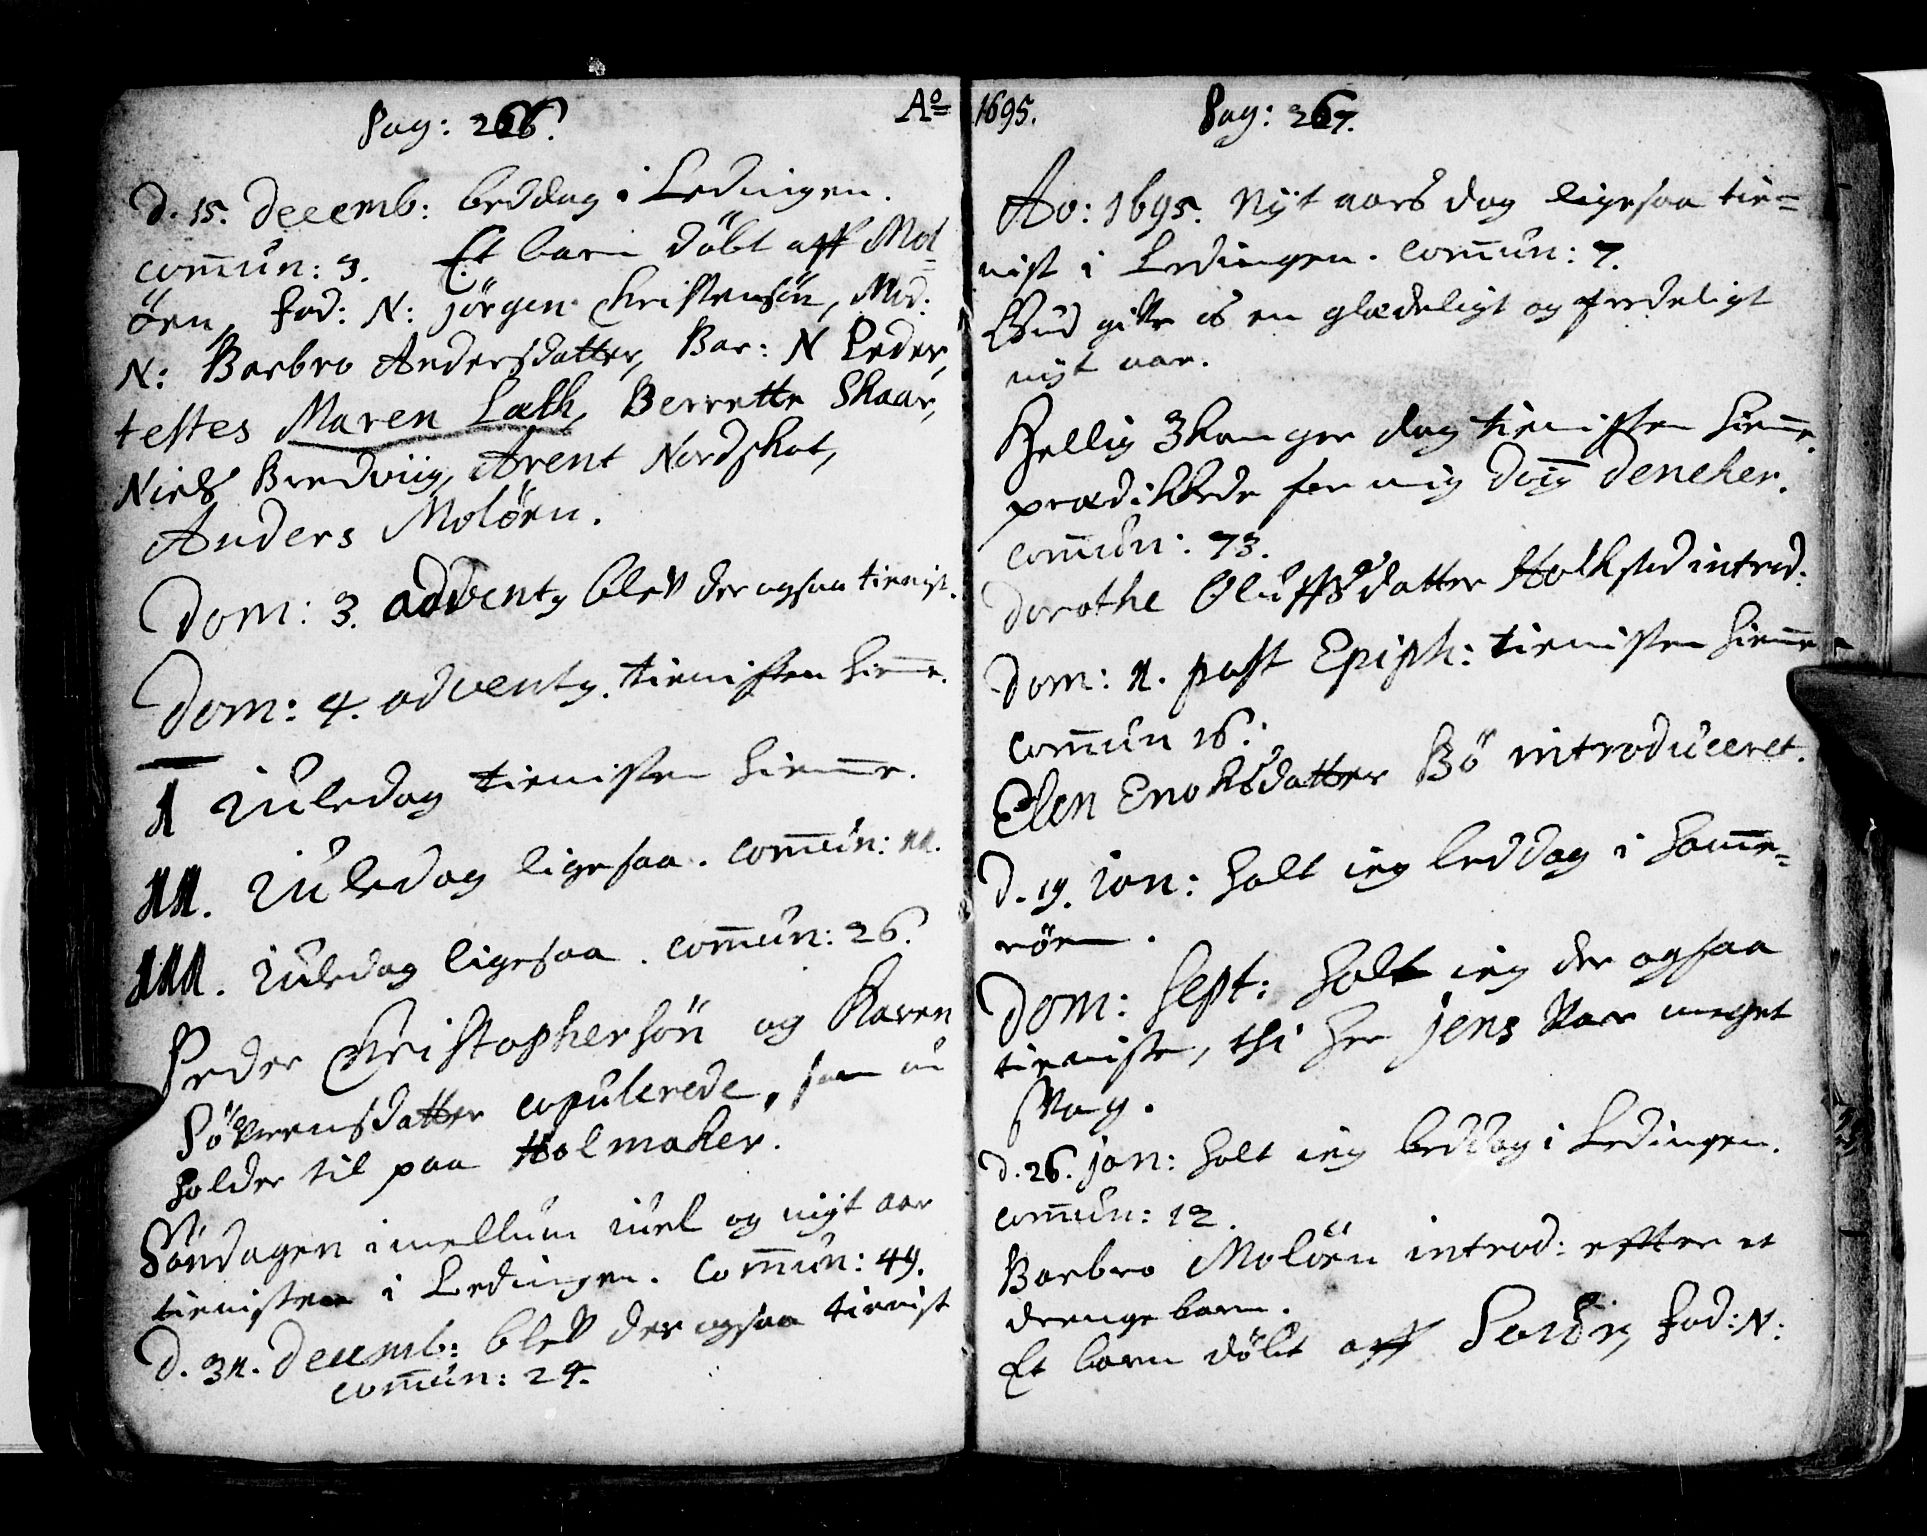 Pag: 266.
d. 15. Decemb: beddag i Ledingen.
com̅un: 3. Et barn döbt aff Mol
öen, fad: N: jörgen Christensön, Mod:
N: Barbro Andersdatter, Bar: N Peder,
testes Maren Lælk, Berrette Skaar,
Niels Bredviig, Arent Nordskot,
Anders Molöen.
Dom: 3. advent9 blef der ogsaa tienist.
Dom: 4. advent9. tienisten hiem̅e.
I iuledag tienisten hiem̅e.
II. iuledag ligesaa. com̅un: 11.
III. iuledag ligesaa. com̅un: 26.
Peder Christophersön og Karen
Söfrensdatter copulerede, som nu
holder til paa Holmaker.
Söndagen imellum iuel og nyt aar
tienisten i Ledingen. Com̅un: 49.
D. 31. Decemb: blef der ogsaa tienist
com̅un: 24.
Aº 1695.
Pag: 267.
Ao: 1695. Nyt aars dag ligesaa tie=
nist i Ledingen. Com̅un: 7.
Gud gifve os en glædeligt og fredeligt
nyt aar.
Hellig 3 konger dag tienisten hiem̅e.
prædikkede for mig Deneker.
com̅un: 73.
Dorothe Oluffsdatter Holksted introd:
Dom: 1. post Epiph: tienisten hiem̅e
com̅un 16:
Elen Enoksdatter Bö introduceret.
d. 19. ian: holt ieg beddag i Ham̅e=
röen.
Dom: Sept: holt ieg der ogsaa
tieniste, thi her Jens var meget
svag.
d. 26. jan: holt ieg beddag i Ledingen.
com̅un: 12.
Barbro Molöen introd: efter et
drenge barn.
Et barn döbt aff fad: N: